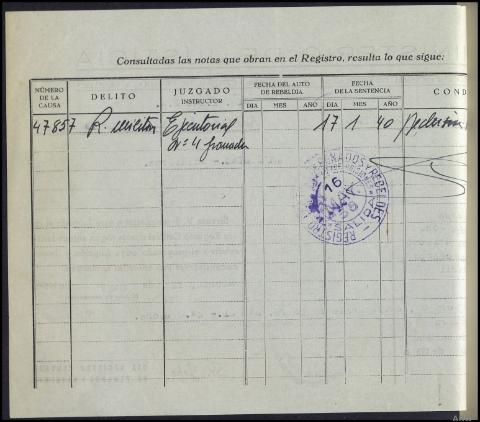 Consultadas las notas que obran en el Registro, resulta lo que sigue:
NÚMERO DE LA CAUSA DELITO JUZGADO INSTRUCTOR FECHA DEL AUTO DE REBELDIA FECHA DE LA SENTENCIA COND
DIA MES AÑO DIA MES AÑO
47857 R. militar Ejecutorias 17 1 40
nº 4 Granada
PENADOS Y REBELDES
16
SALIDA
REGISTRO